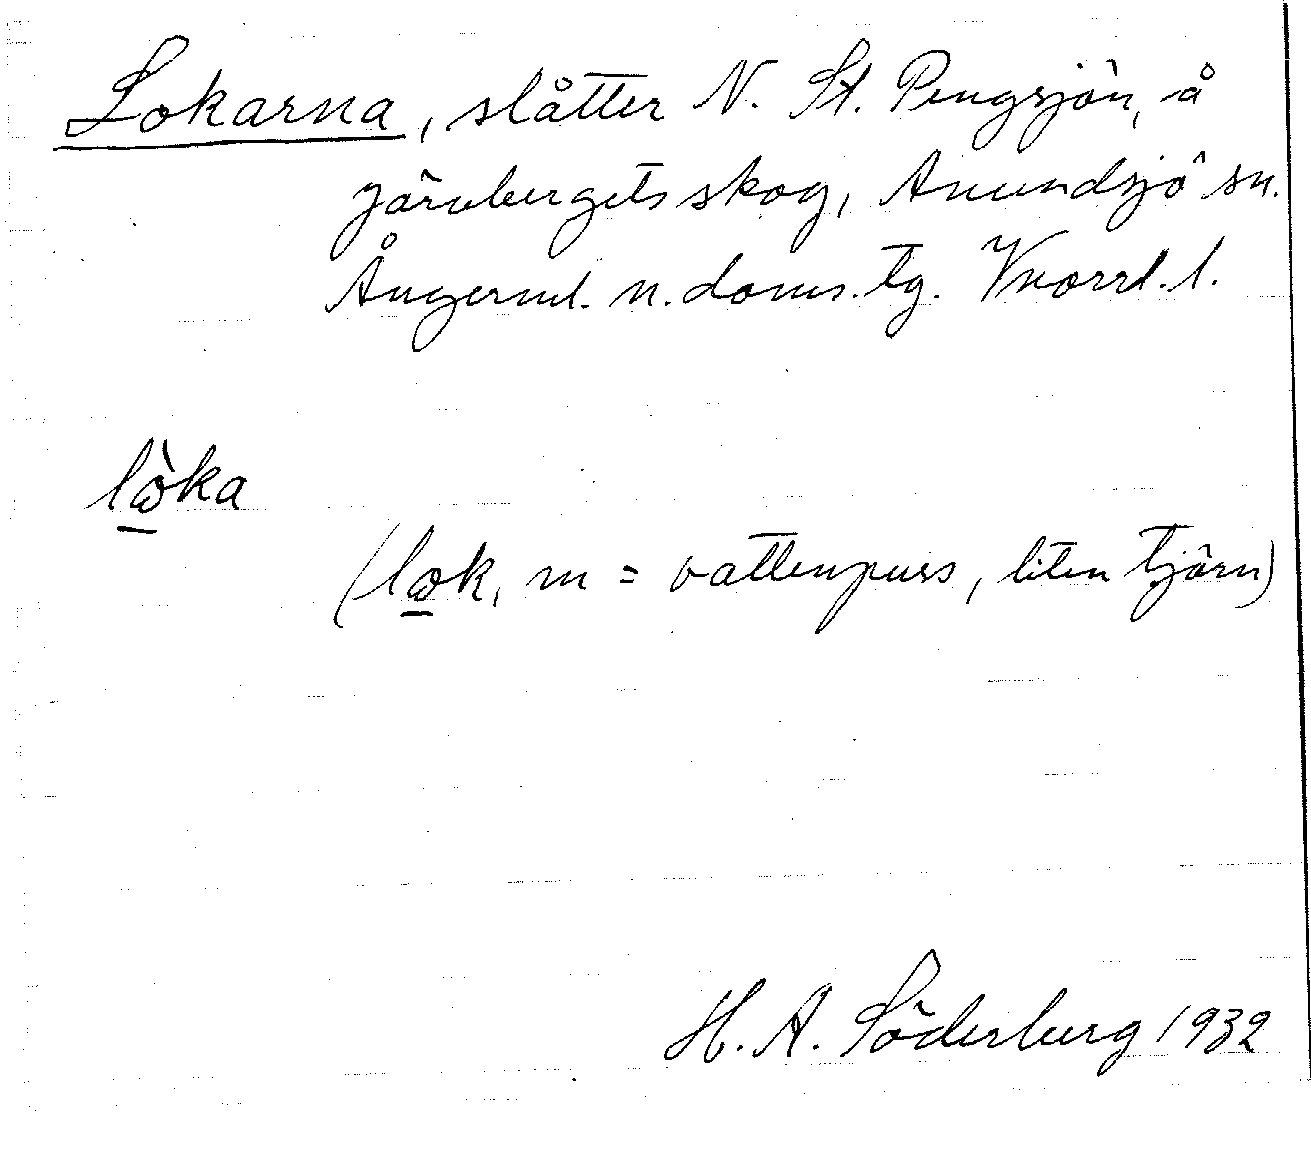 Lokarna, slåtter N. St. Pengsjön, å
Järvbergets skog, Anundsjö sn.
Ångerml. n. doms. tg. Vnorrl. l.
lòka
(lok, m = vattenpuss, liten tjärn)
H. A. Söderberg 1932